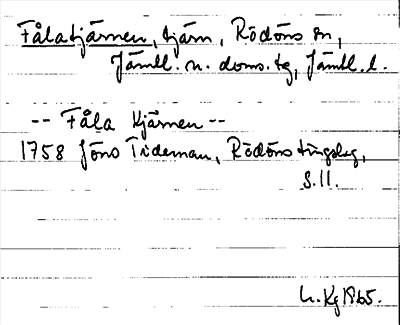 Fålatjärnen, tjärn, Rödöns sn,
Jämtl. n. doms. tg, Jämtl. l.
-- Fåla Kjärnen --
1758 Jöns Tideman, Rödöns tingslag,
S. 11.
Kg 1965.